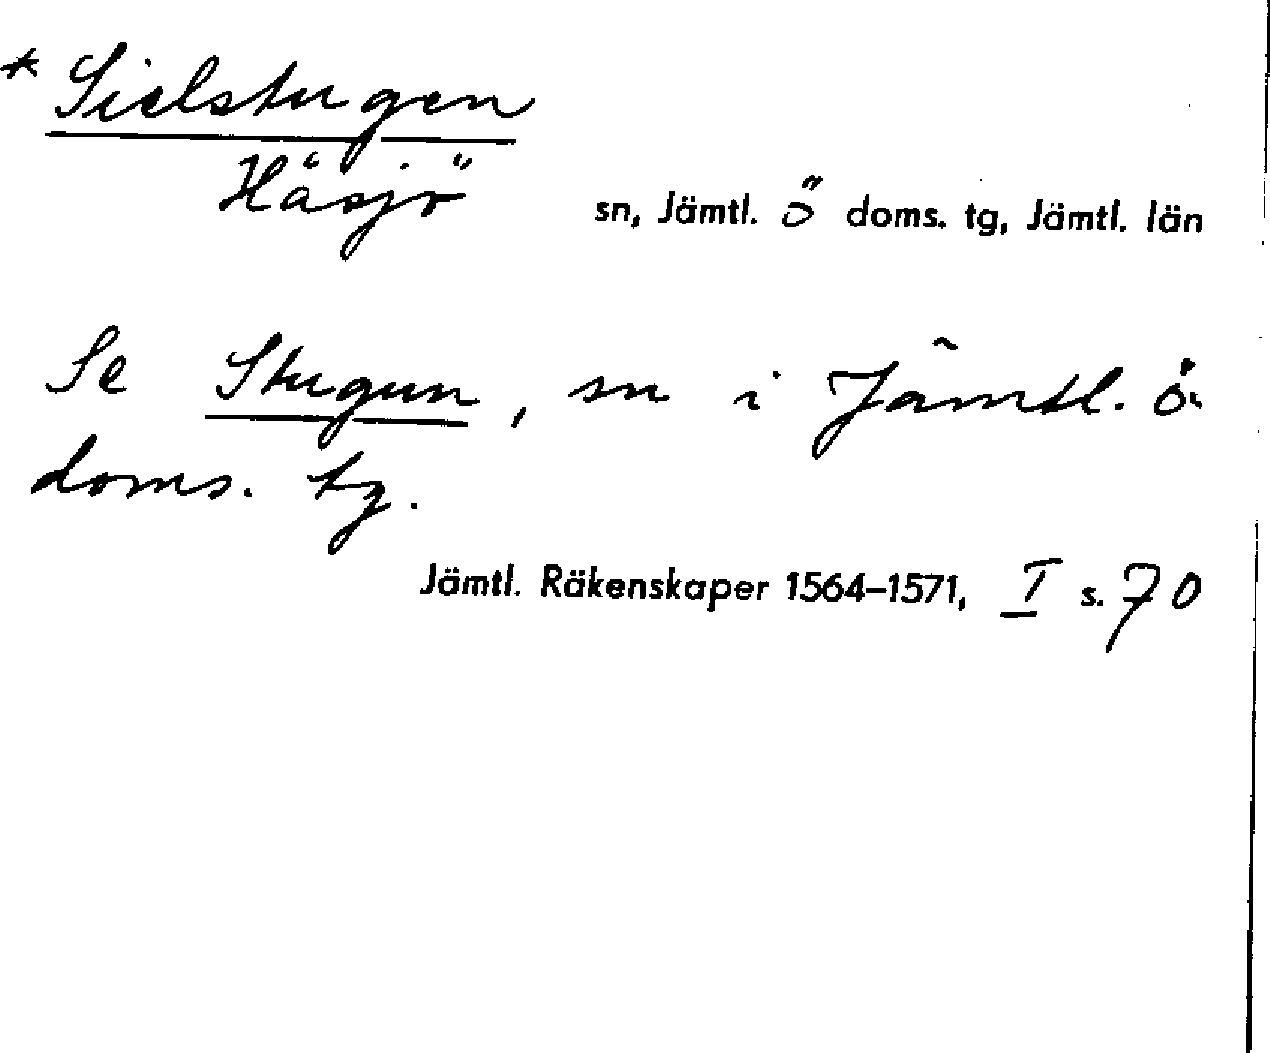 * Sielstugen
Häsjö sn, Jämtl. Ö doms. tg, Jämtl. län
Se Stugun, sn i Jämtl. ö.
doms. tg.
Jämtl. Räkenskaper 1564–1571, I s. 70